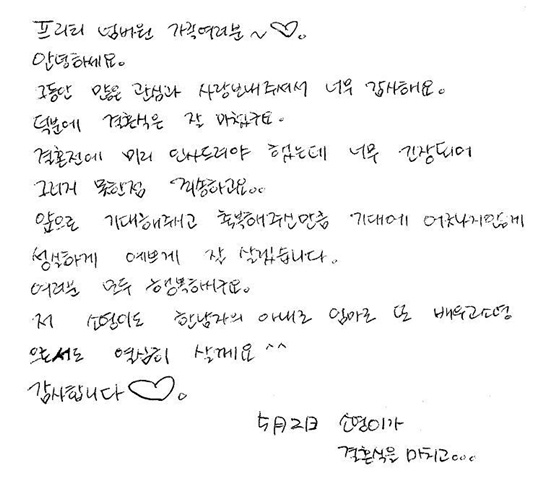 프리티 넘버원 가족여러분~♡。
안녕하세요。
그동안 많은 관심과 사랑보내주셔서 너무 감사해요。
덕분에 결혼식은 잘 마쳤구요。
결혼전에 미리 인사드려야 했는데 너무 긴장되어
그러지 못한점 죄송하고요。。
앞으로 기대해주고 축복해주신만큼 기대에 어긋나지않게
성실하게 예쁘게 잘 살겠습니다。
여러분 모두 행복하시구요。
저 소영이도 한남자의 아내로 엄마로 또 배우고소영
으로서도 열심히 살께요 ^^
감사합니다♡。
5月2日 소영이가
결혼식을 마치고。。。